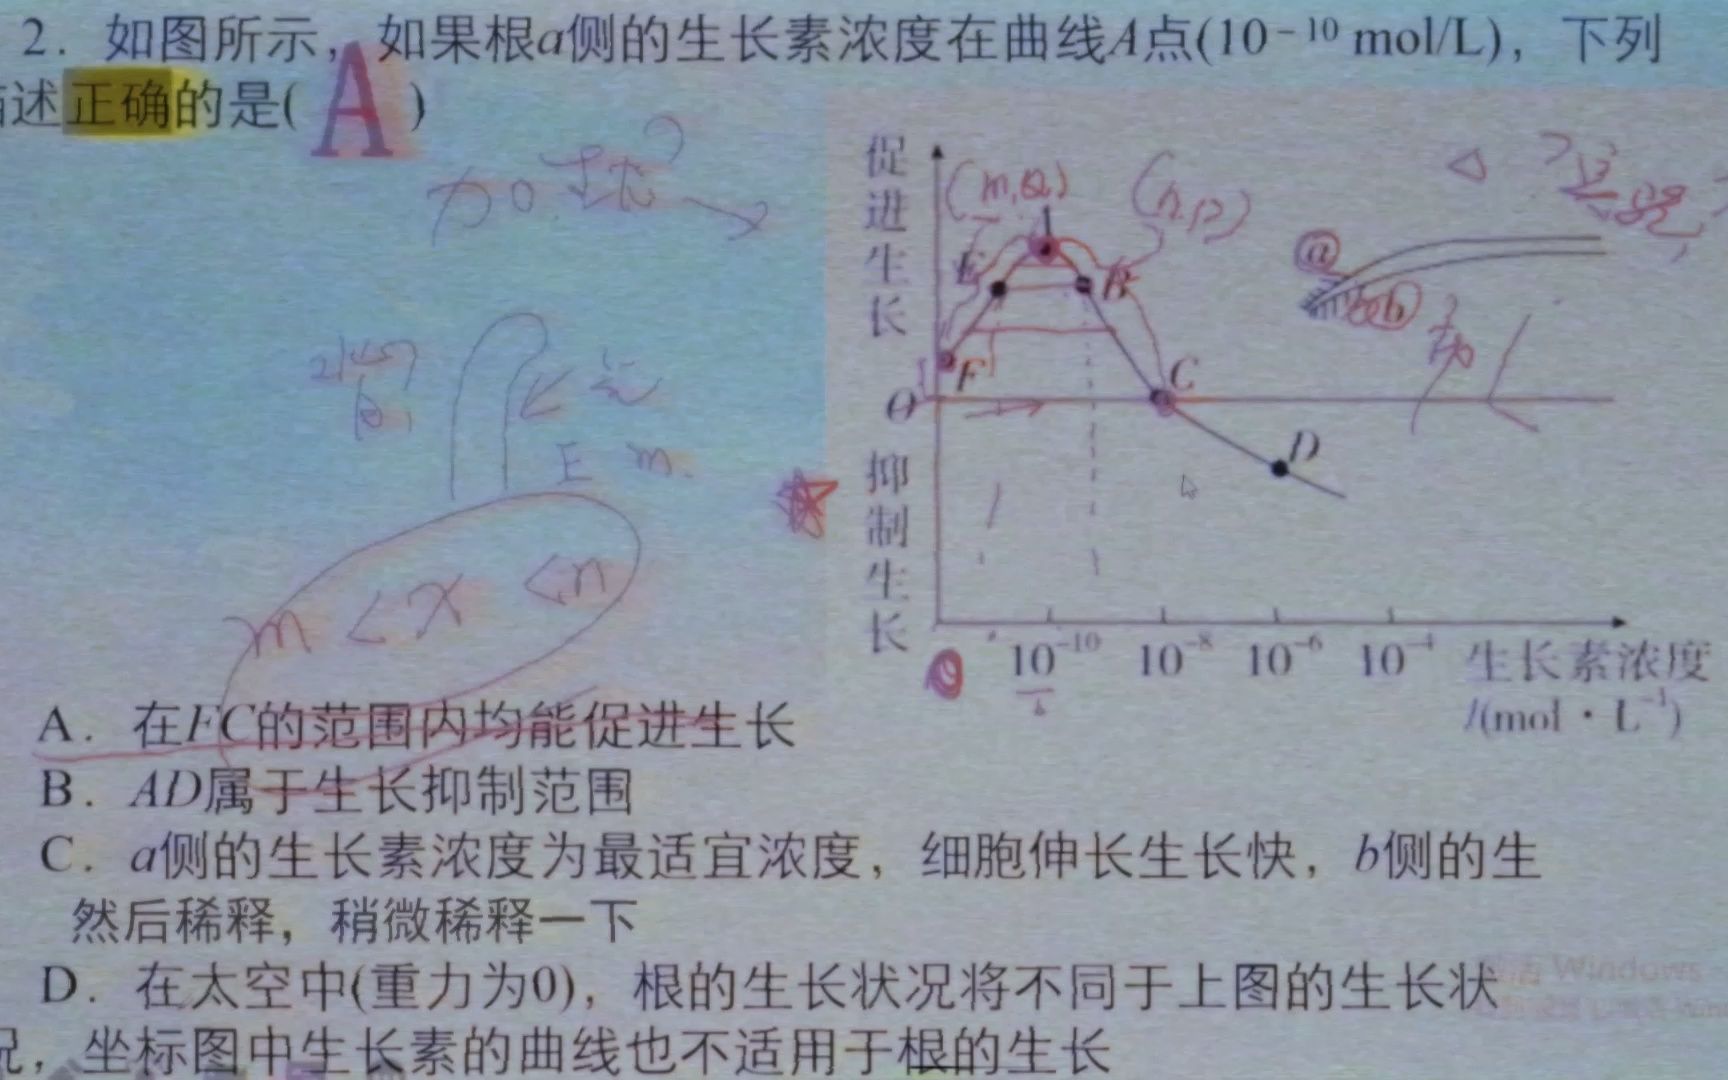 2．如图所示，如果根a侧的生长素浓度在曲线A点(10⁻¹⁰ mol/L)，下列
述正确的是( A )
促进生长
(m,Q)
E
B
F
C
O
D
a
b
抑制生长
10⁻¹⁰ 10⁻⁸ 10⁻⁶ 10⁻⁴ 生长素浓度
/(mol·L⁻¹)
E m
m < x < n
A．在FC的范围内均能促进生长
B．AD属于生长抑制范围
C．a侧的生长素浓度为最适宜浓度，细胞伸长生长快，b侧的生
然后稀释，稍微稀释一下
D．在太空中(重力为0)，根的生长状况将不同于上图的生长状
况，坐标图中生长素的曲线也不适用于根的生长
Windows